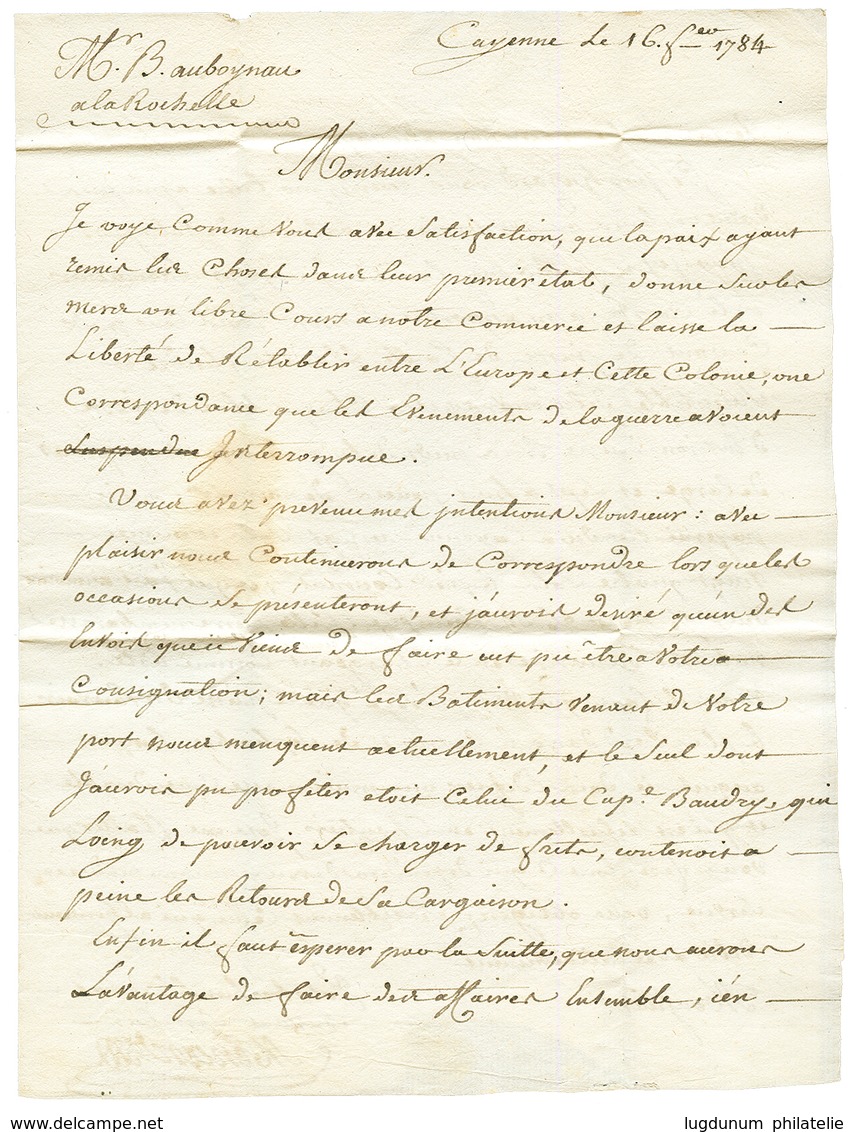 Cayenne le 16. fev 1784
Mr. B. auboynau
a la Rochelle
Monsieur.
Je voye, Comme vous avec Satisfaction, que la paix ayant
remis les Choses dans leur premier êtat, donne Sur les
mers un libre Cours a notre Commerce et laisse la
Liberté de Rétablir entre L'Europe et Cette Colonie, une
Correspondance que les Evenements de la guerre avoient
suspendue Interrompue.
Vous avez prevenu mes jntentions Monsieur : avec
plaisir nous Continuerons de Correspondre lorsque les
occasions Se présenteront, et j'aurois desiré qu'un des
Envois que je viens de faire eut pu être a Votre
Consignation; mais les Batiments venant de Votre
port nous menquent actuellement, et le Seul dont
J'aurois pu profiter etoit Celui du Cap.e Baudry, qui
Loing de pouvoir Se charger de frets, contenoit a
peine les Retours de Sa Cargaison.
Enfin il faut èsperer par la Suitte, que nous aurons
L'avantage de faire des affaires Ensemble, j'én
lugdunum philatelie
www.delcampe.net